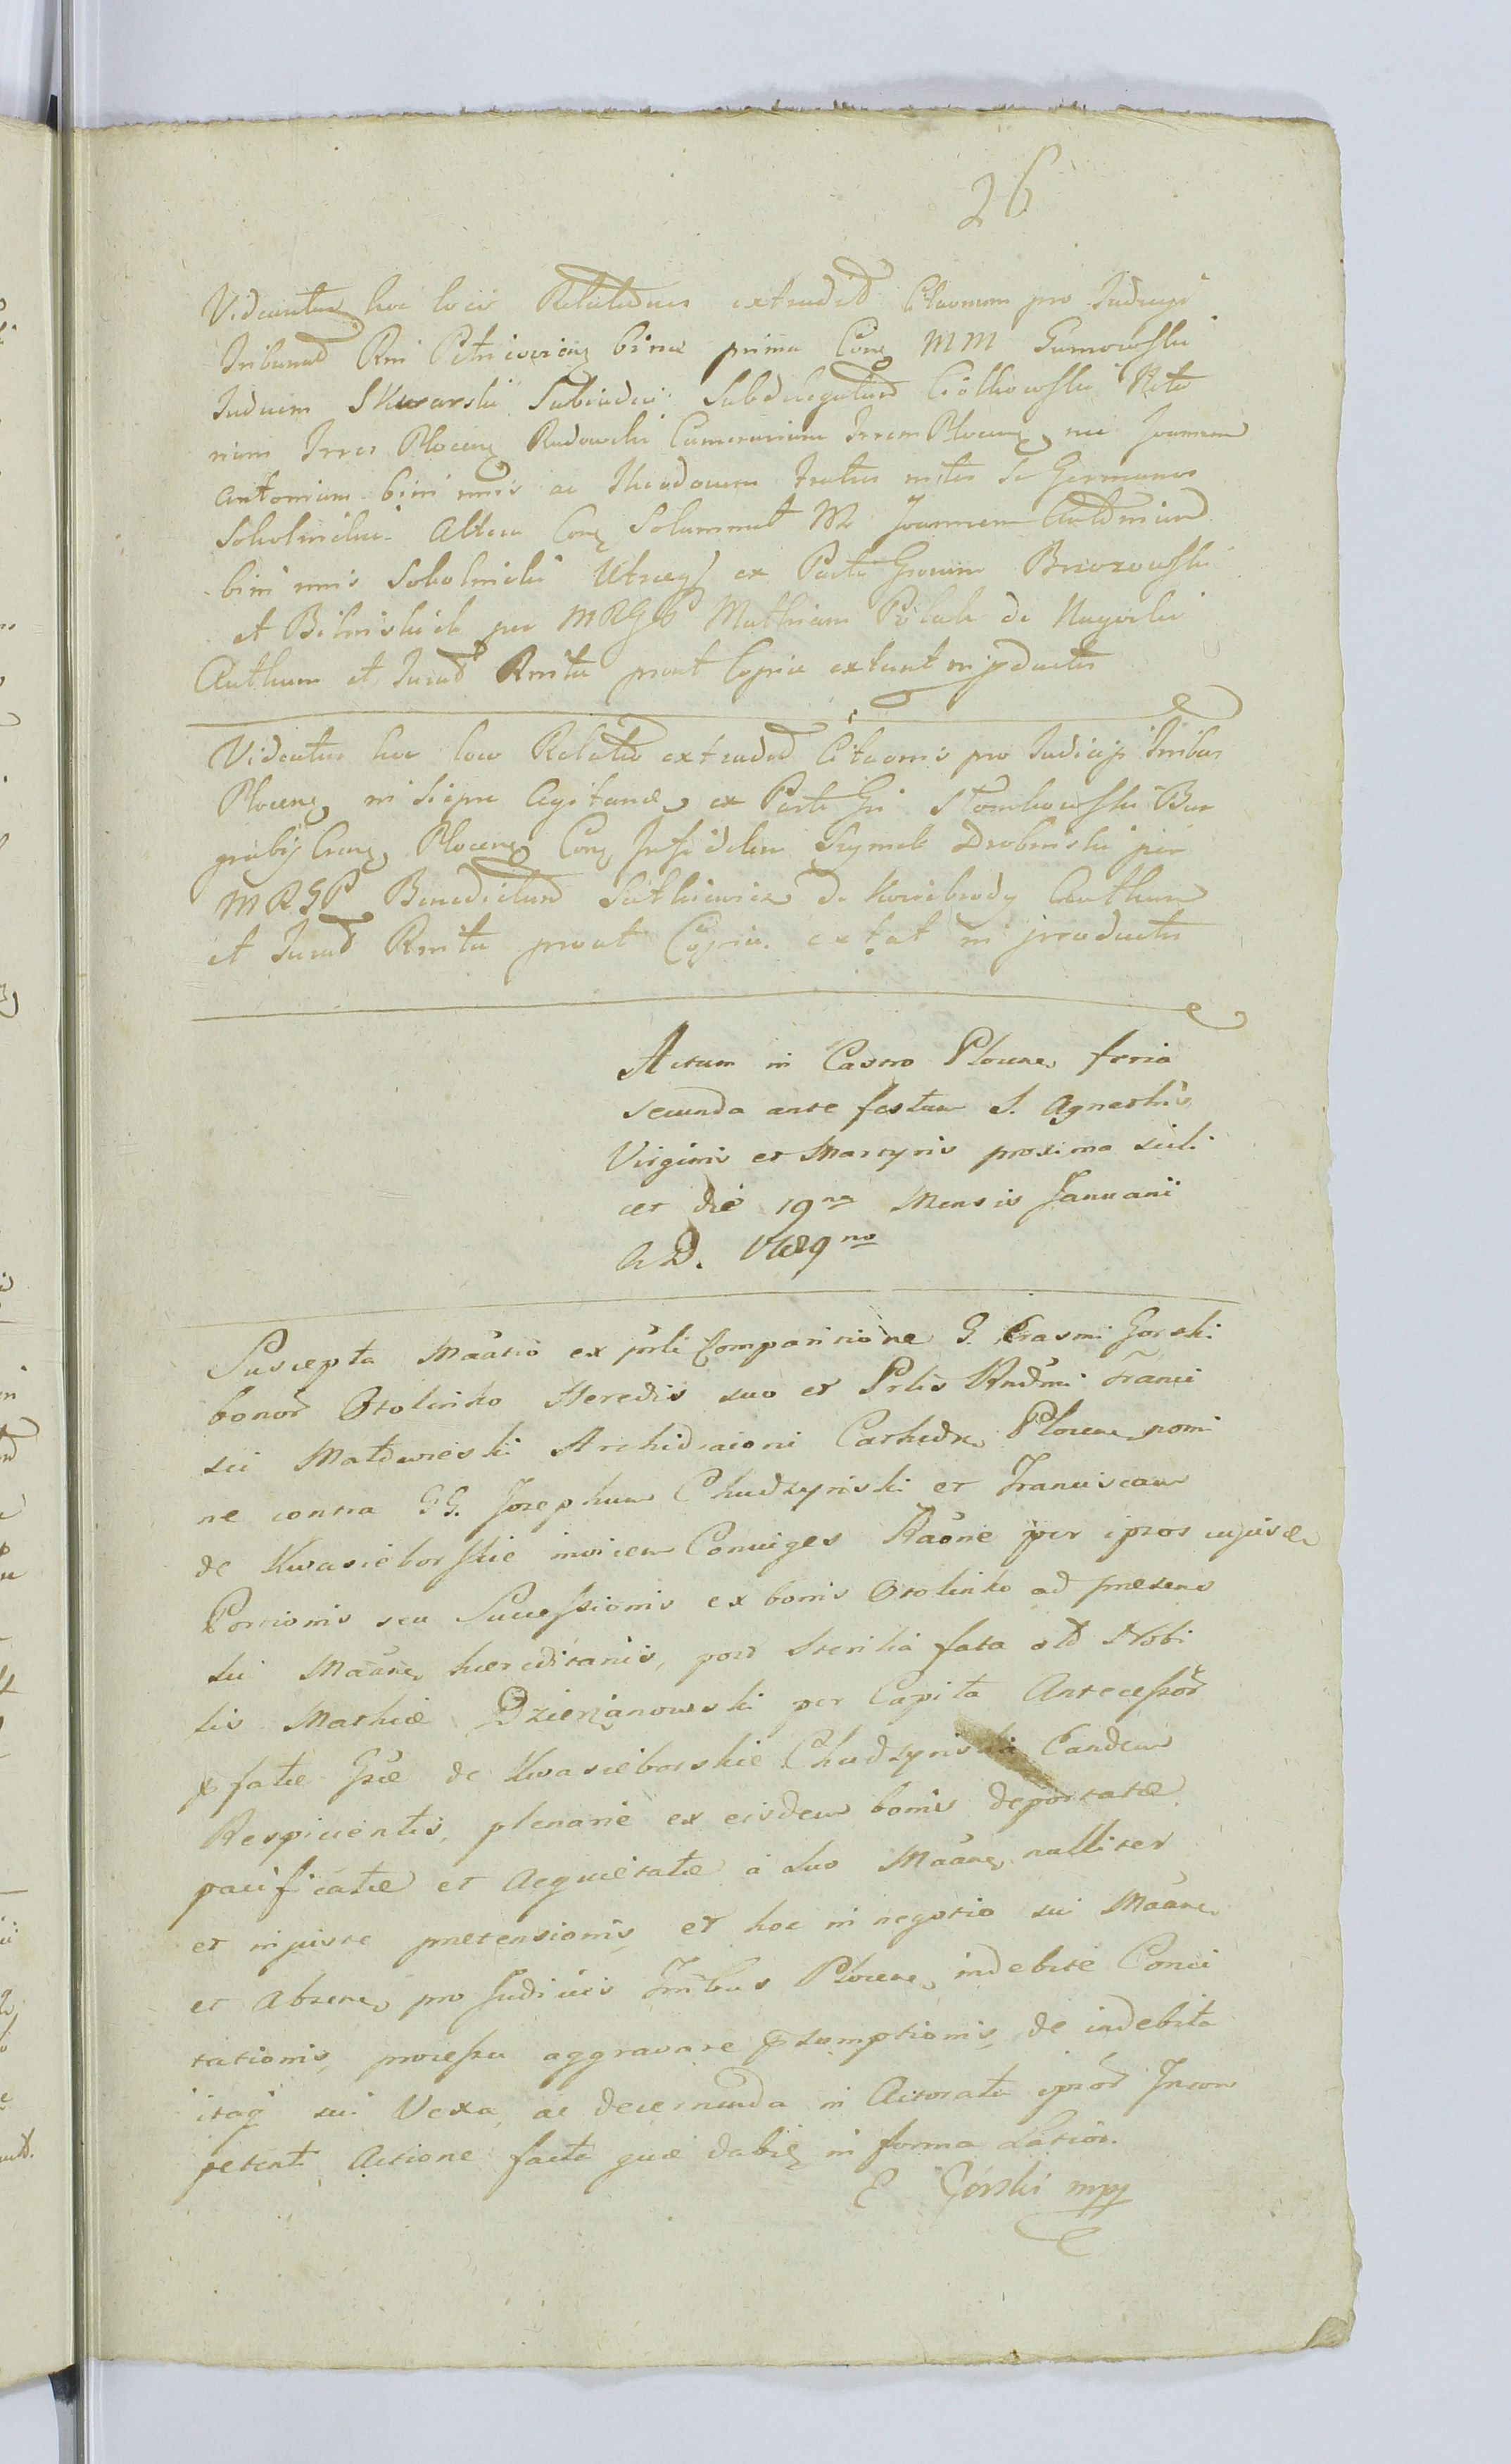 26
Videantur hoc loco Relationes extradit Citaonum pro Judicijs
Tribunal Rni Petricovien binæ prima Con MM Gumowski
Judicem Skwarski Subiudici Subdelegatum Ciółkowski Nota
rium Trrer Plocen Radowski Camerarium Trrem Plocen nec Joannem
Antonium bini nnis ac Theodorum Fratres inter se Germanos
Sokolnickie. Altera Con Solummet M Joannem Antonium
bini nnis Sokolnicki Utræq ex Parte Grorum Brzozowski
et Bilinskich per MRGP Mathiam Polak de
Authum et Jurat Rnita prout Copiæ extant in pductis
Videatur hoc loco Relatio extradit Citaonis pro Judicijs Tribus
Plocen in Siepre Agitand ex Parte Gri Słomkowski Bur
grabij Cren Plocen Con Infidelem Szymek Drobinski per
MRGP Benedictum de Authum
et Jurat Rnita prout Copia extat in productis
Actum in Castro Plocen feria
secunda ante festum S. Agnethis
Virginis et Martyris proxima scili
cet die 19na Mensis Januarii
A D. 1789no
Suscepta Maatio ex prli Comparitione G. Erasmi Gorski
bonor Osolinko Heredis suo et Prlis Rndmi Franci
sci Matdzieski Archidiaconi Cathedr Plocen nomi
ne contra GG. Josephum Chudzynski et Franciscam
de Kwasieborskie invicem Conjuges Raone per ipsos cujusce
Portionis seu Successionis ex bonis Osolinko ad præsens
sui Maan hæreditariis, post sterilia fata olt Nobi
lis Mathiæ Dzierzanowski per Capita Antecessor
pfatæ Gsæ de Kwasieborskie Chudzynska Eandem
Respicientis, plenarie ex eisdem bonis deportatæ
pacificatæ et Acquietatæ a suo Maan nulliter
et injuste prætensionis, et hoc in negotio sui Maan
et Absen pro Judiciis Tribus Plocen indebite Conci
tationis, processu aggravare psumptionis, de indebita
itaq sui Vexa ac decernenda in Actoratu ipsor Incom
petenti Actione facti quæ dabit in forma Latior.
E Górski mpp